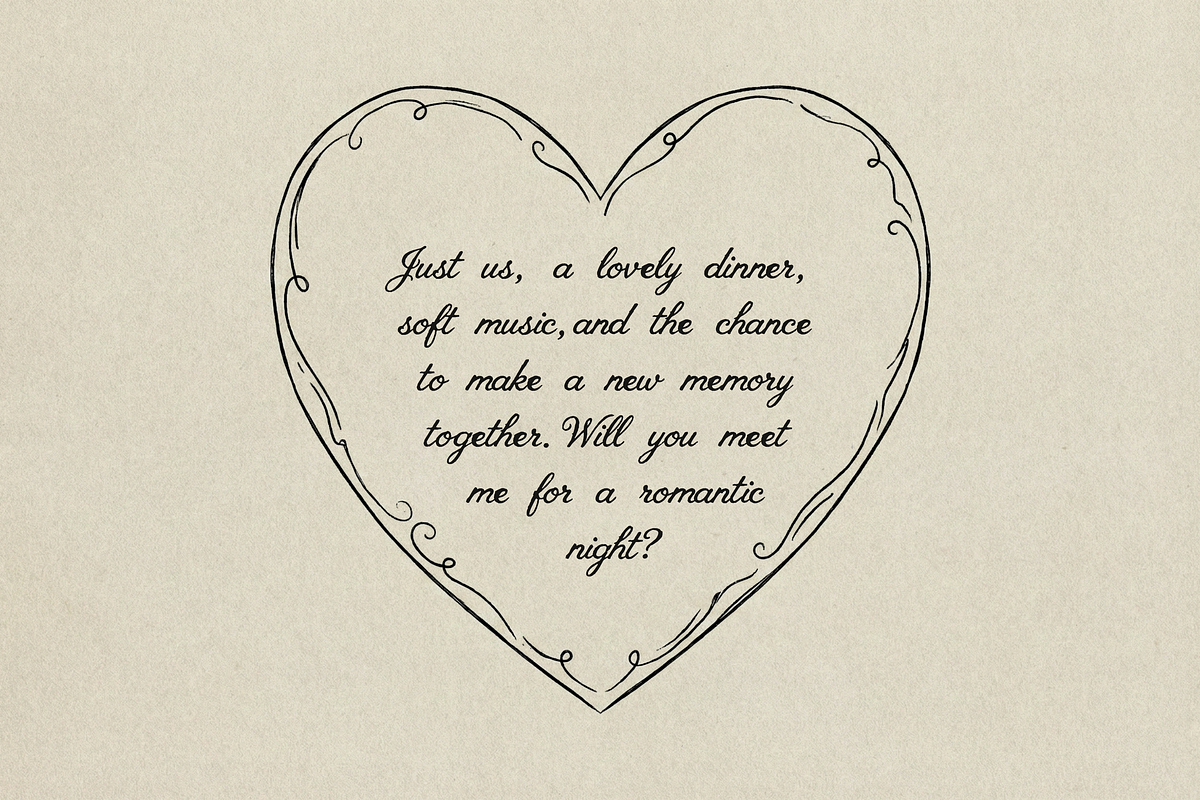 Just us, a lovely dinner,
soft music, and the chance
to make a new memory
together. Will you meet
me for a romantic
night?